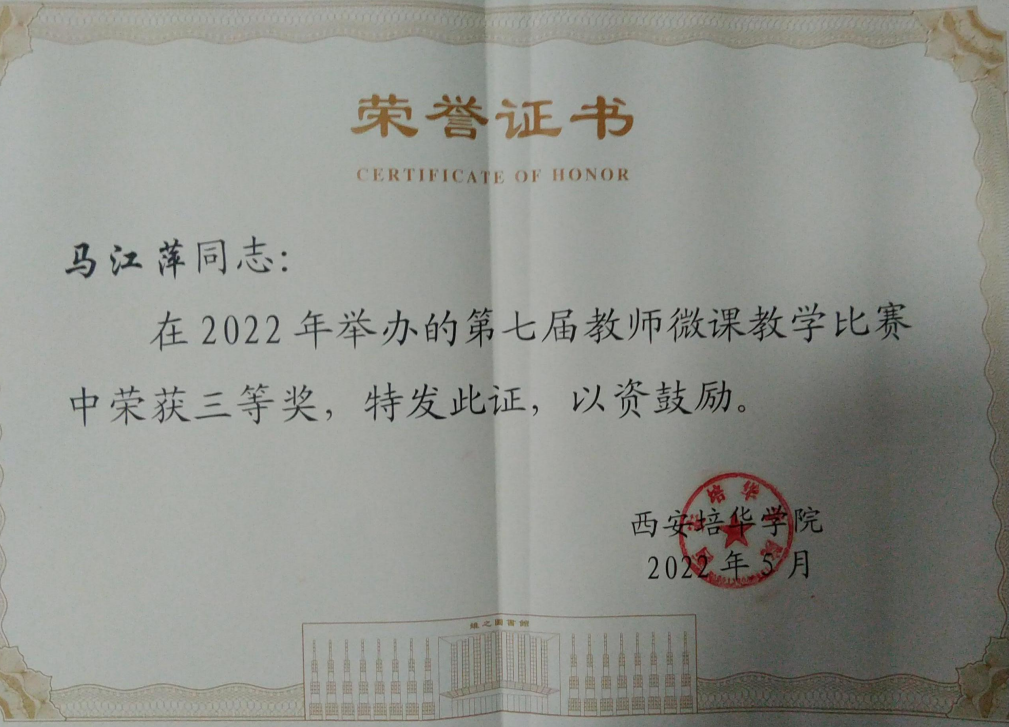 荣誉证书
CERTIFICATE OF HONOR
马江萍同志：
在2022年举办的第七届教师微课教学比赛
中荣获三等奖，特发此证，以资鼓励。
西安培华学院
2022年5月